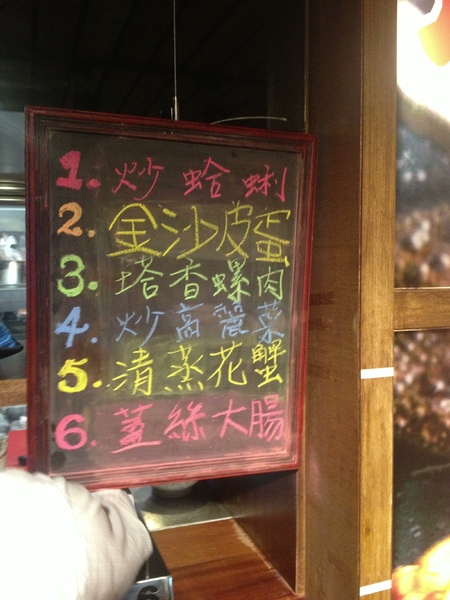 1. 炒蛤蜊
2. 金沙皮蛋
3. 塔香螺肉
4. 炒高麗菜
5. 清蒸花蟹
6. 薑絲大腸
6